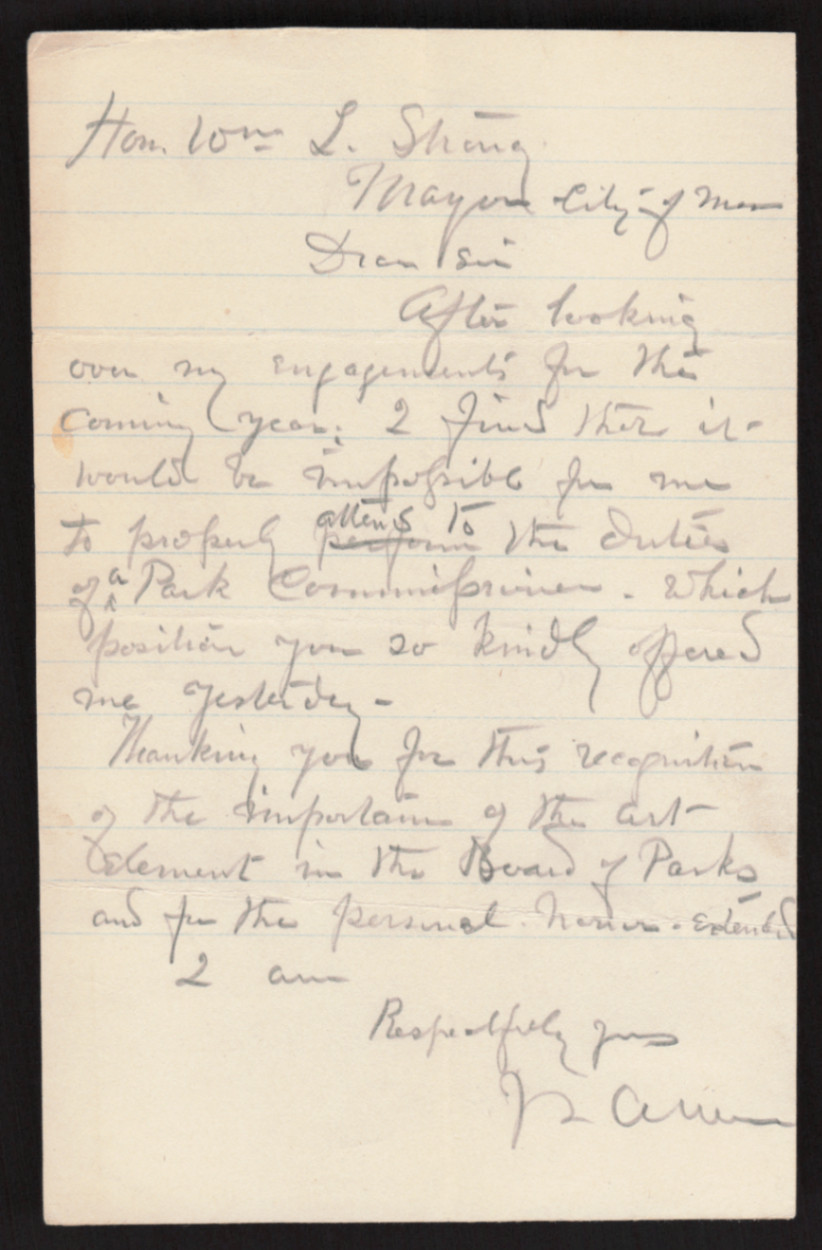 Hon. Wm L. Strong
Mayor City of
Dear Sir
After looking
over my engagements for the
coming year, I find that it
would be impossible for me
to properly perform attend to the duties
of a Park Commissioner. Which
position you so kindly offered
me yesterday -
Thanking you for this recognition
of the importance of the art
Element in the Board of Parks
and for the personal honor - Extended
I am
Respectfully yours